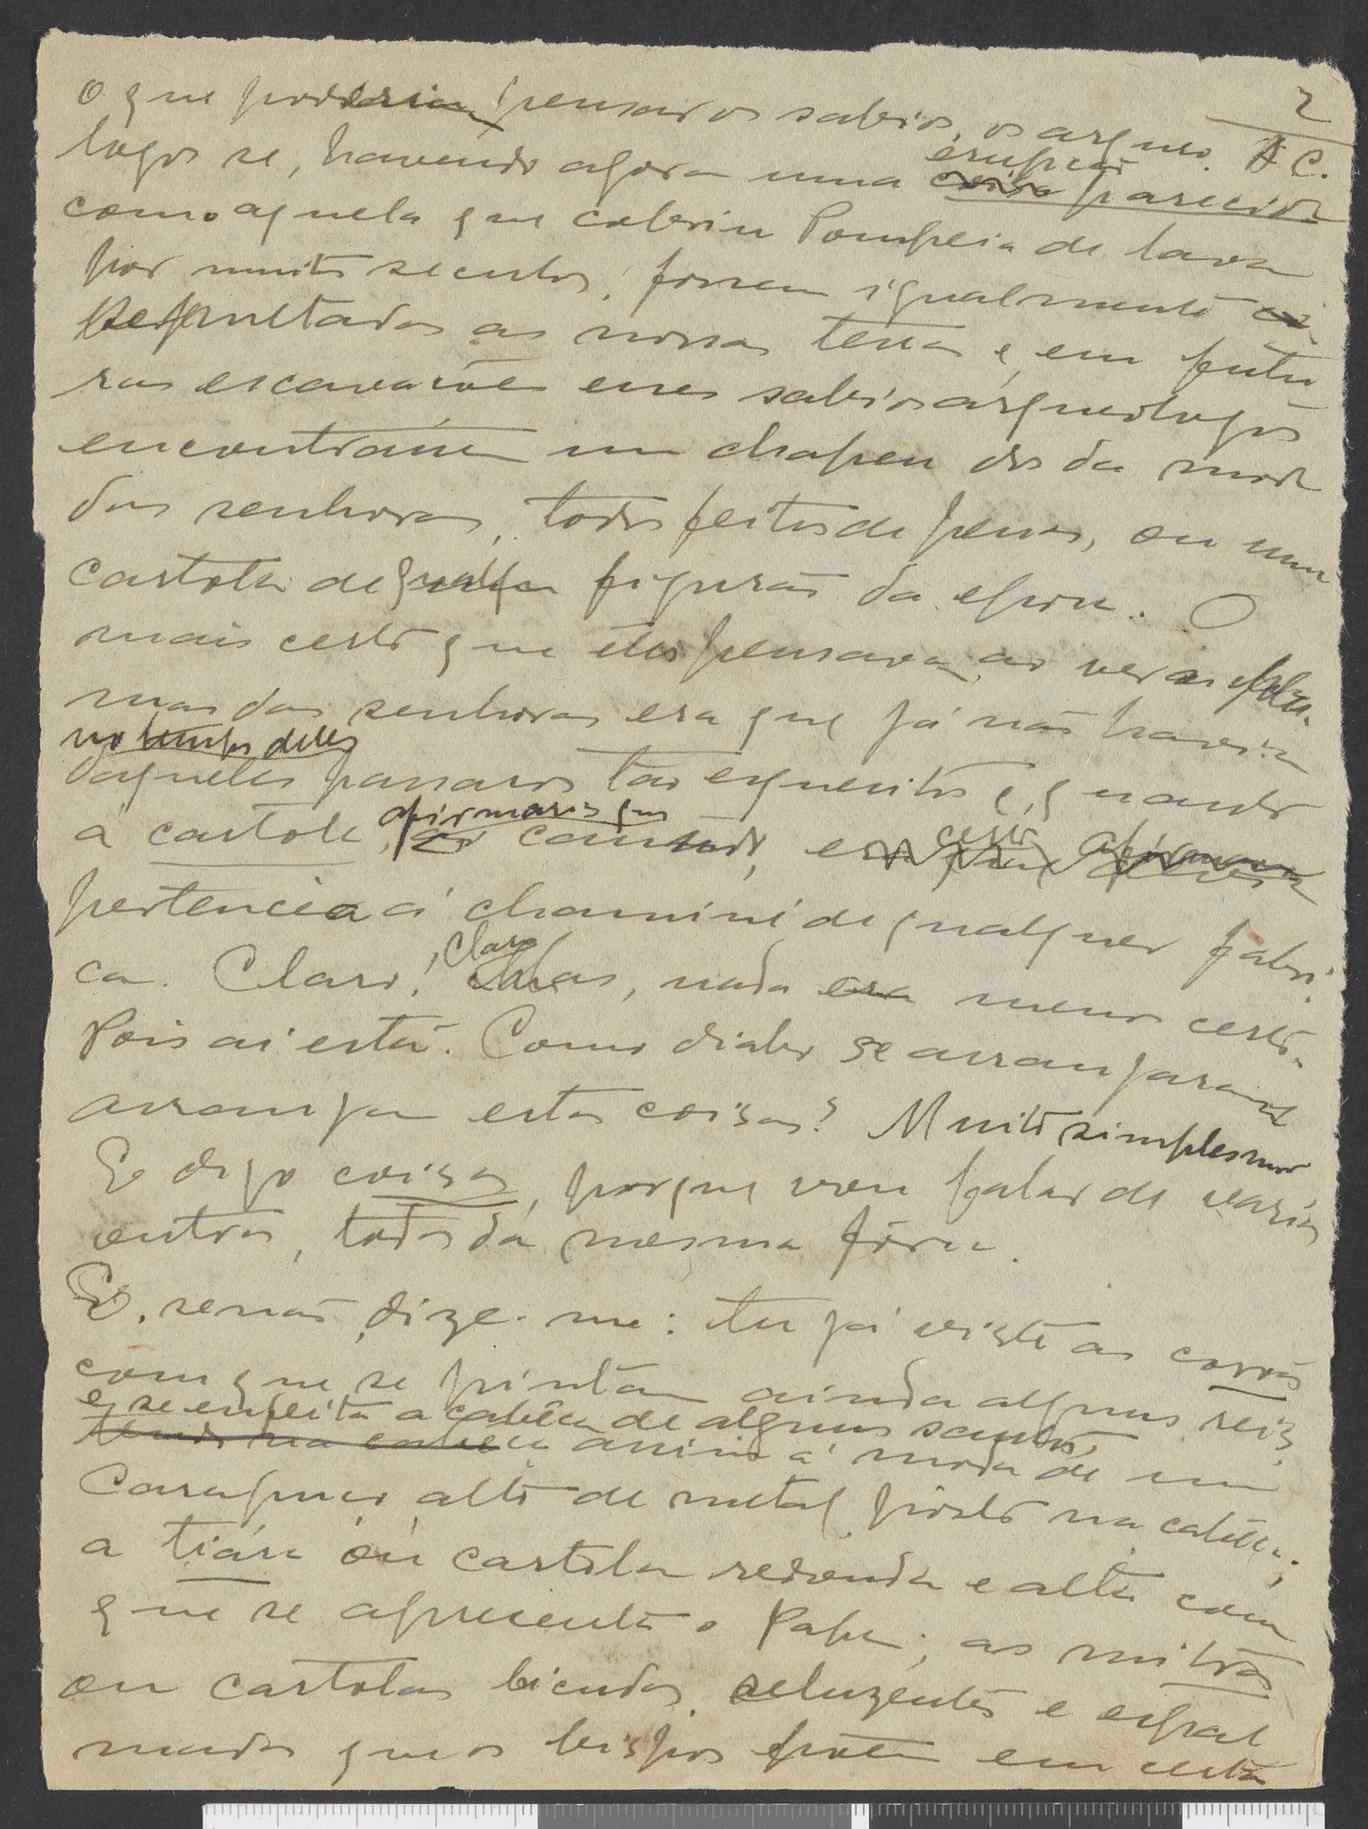 2
A C.
O que poderiam pensar os sabios, os arqueo.
logos se, havendo agora uma erupção coisa parecida
como aquela que cobriu Pompeia de lava
por muitos seculos, fossem igualmente
sepultadas as nossas terras e, em futu
ras escavações esses sabios arqueologos
encontrassem um chapeu dos da moda
das senhoras, todos feitos de penas, ou uma
cartola de qualquer figurão da epoca. O
mais certo que eles pensavam, ao ver as plu.
mas das senhoras era que já não havia
no tempo deles
daqueles passaros tão esquesitos e, quando
afirmavam que
á cartola, certo
pertencia á chaminé de qualquer fabri.
ca. Claro!, claro Mas, nada era menos certo.
Pois aí está. Como diabo se arranjaram
arranjam estas coisas? Muito simplesmen
E digo coisas, porque vou falar de varias
outras, todas da mesma fórma.
E, senão, dize-me: tu já viste as corôas
com que se pintam ainda alguns reis
e se enfeita a cabeça de alguns santos,
tendo na cabeça assim á moda de um
carapuço alto de metal posto na cabeça;
a tiára ou cartola redonda e alta com
que se apresenta o Papa; as mitras
ou cartolas bicudas, reluzentes e espal
madas que os bispos põem em certa